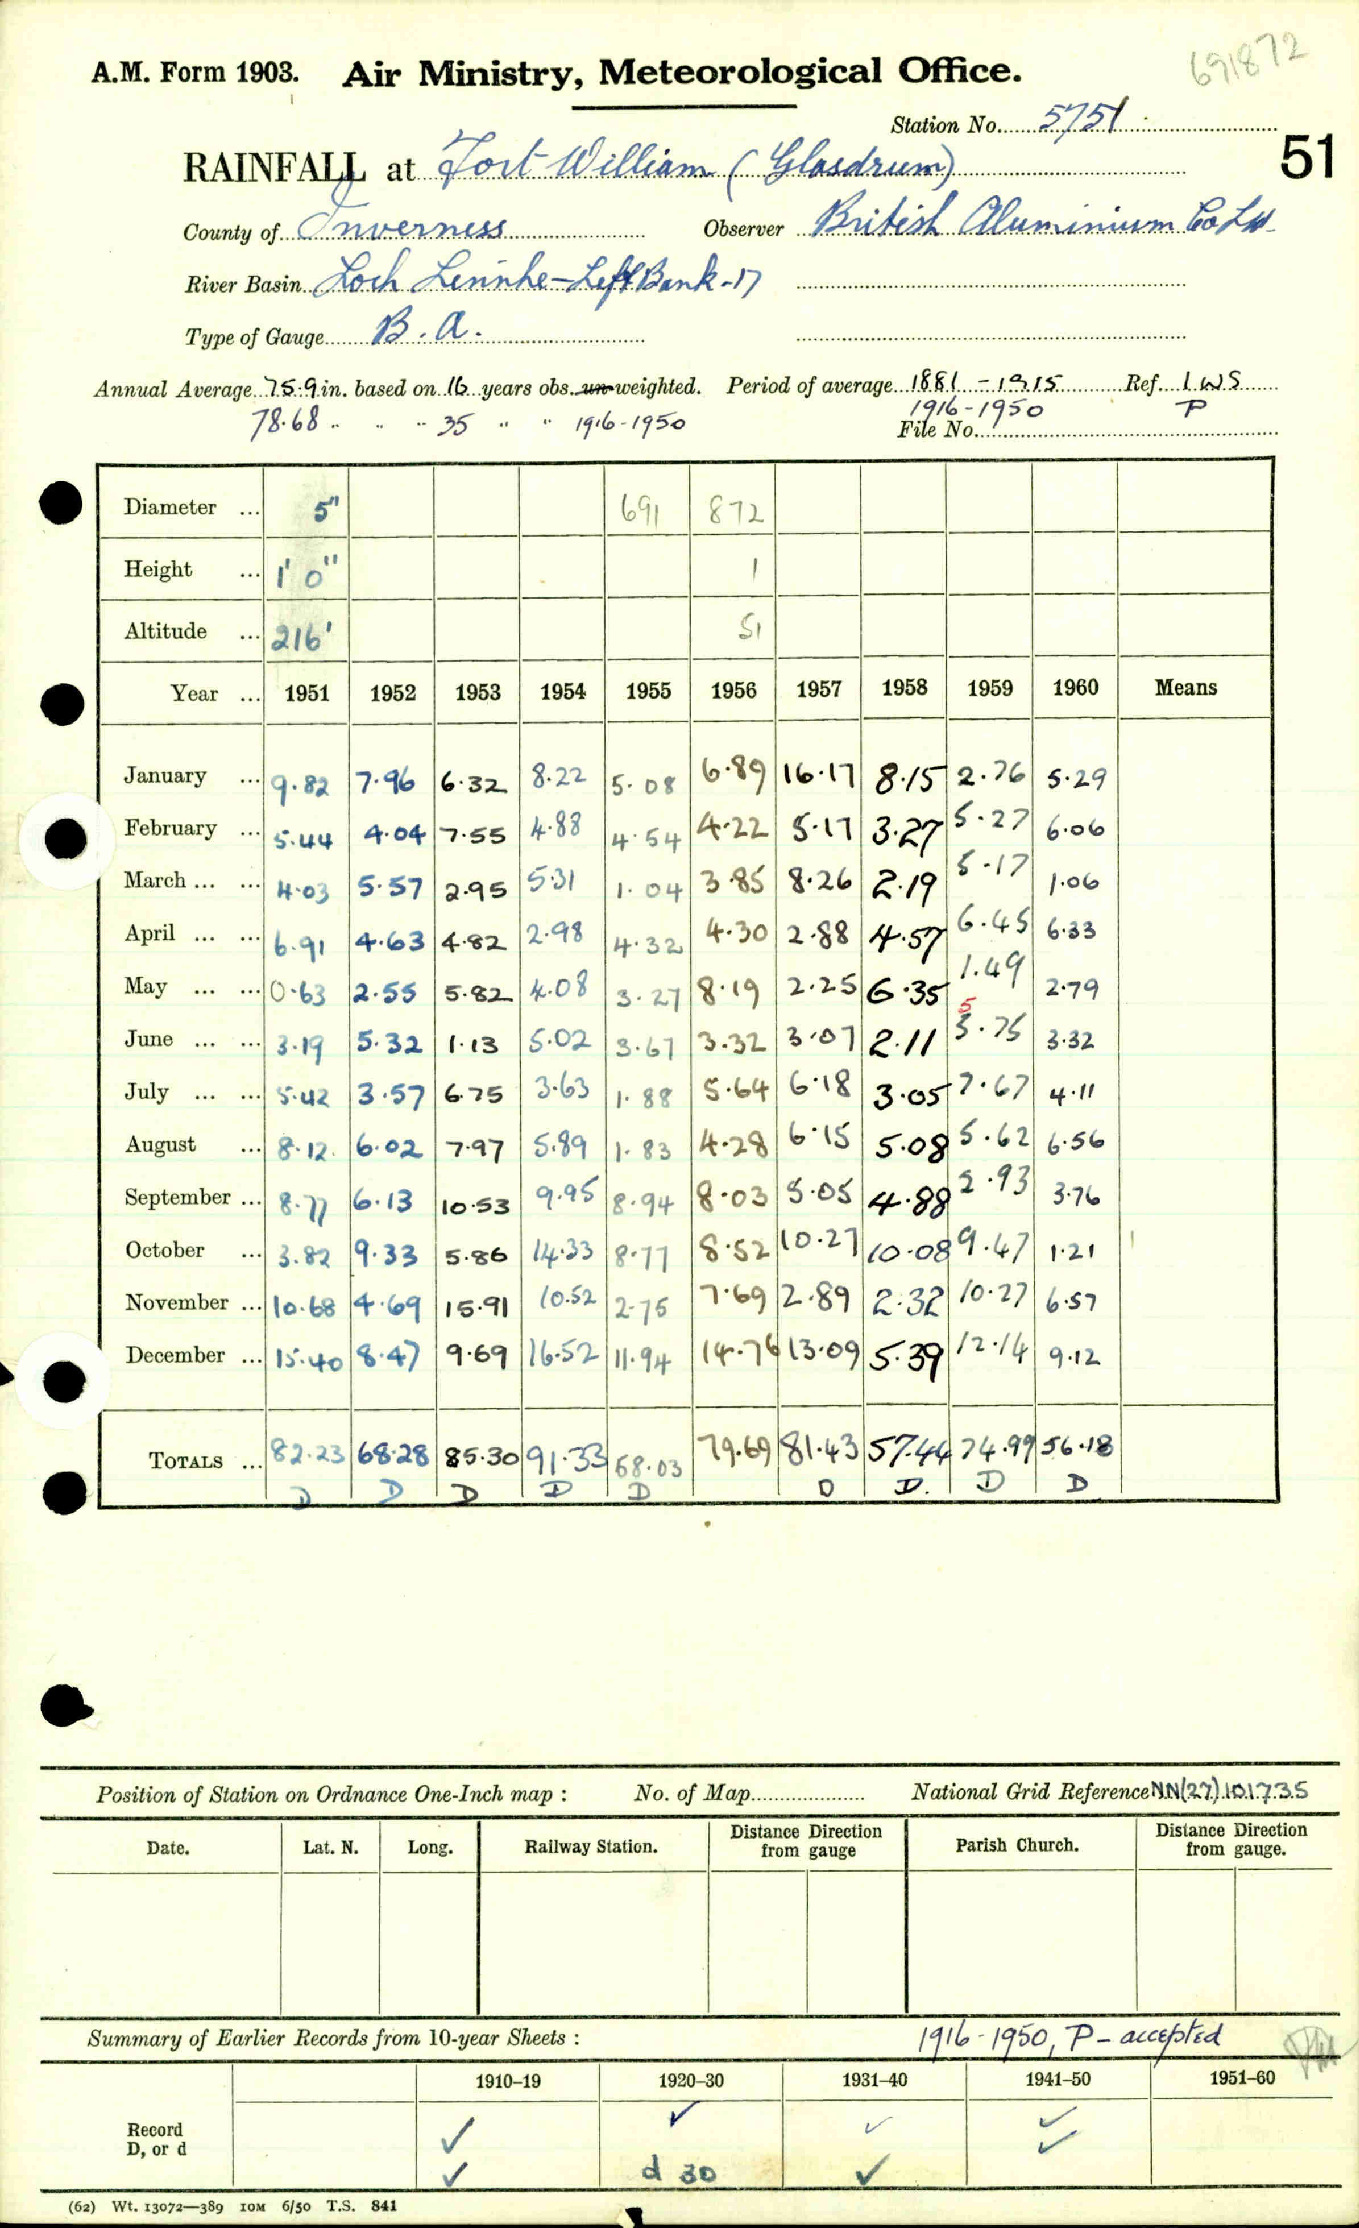 691872
A.M. Form 1903. Air Ministry, Meteorological Office.
Station No. 5751
RAINFALL at Fort William (Glasdrum) 51
County of Inverness Observer British Aluminium Co Ltd
River Basin Loch Linnhe-Left Bank-17
Type of Gauge B. A.
Annual Average 75.9 in. based on 16 years obs. un-weighted. Period of average 1881-1915 Ref. I W S
78.68 " " " 35 " " 1916-1950 1916-1950 P
File No.
Diameter ... 5" 691 872
Height ... 1' 0" 1
Altitude ... 216' 51
Year ... 1951 1952 1953 1954 1955 1956 1957 1958 1959 1960 Means
January ... 9.82 7.96 6.32 8.22 5.08 6.89 16.17 8.15 2.76 5.29
February ... 5.44 4.04 7.55 4.88 4.54 4.22 5.17 3.27 5.27 6.06
March ... ... 4.03 5.57 2.95 5.31 1.04 3.85 8.26 2.19 5.17 1.06
April ... ... 6.91 4.63 4.82 2.98 4.32 4.30 2.88 4.57 6.45 6.33
May ... ... 0.63 2.55 5.82 4.08 3.27 8.19 2.25 6.35 1.49 2.79
5
June ... ... 3.19 5.32 1.13 5.02 3.67 3.32 3.07 2.11 5.75 3.32
July ... ... 5.42 3.57 6.75 3.63 1.88 5.64 6.18 3.05 7.67 4.11
August ... 8.12 6.02 7.97 5.89 1.83 4.28 6.15 5.08 5.62 6.56
September ... 8.77 6.13 10.53 9.95 8.94 8.03 5.05 4.88 2.93 3.76
October ... 3.82 9.33 5.86 14.33 8.77 8.52 10.27 10.08 9.47 1.21
November ... 10.68 4.69 15.91 10.52 2.75 7.69 2.89 2.32 10.27 6.57
December ... 15.40 8.47 9.69 16.52 11.94 14.76 13.09 5.39 12.14 9.12
TOTALS ... 82.23 68.28 85.30 91.33 58.03 79.69 81.43 57.44 74.99 56.18
D D D D D D D. D D
Position of Station on Ordnance One-Inch map : No. of Map National Grid Reference NN(27) 101735
Date. Lat. N. Long. Railway Station. Distance Direction from gauge Parish Church. Distance Direction from gauge.
Summary of Earlier Records from 10-year Sheets : 1916-1950, P-accepted
1910–19 1920–30 1931–40 1941–50 1951–60
Record ✓ ✓ ✓ ✓
D, or d ✓ d 30 ✓ ✓
(62) Wt. 13072—389 10M 6/50 T.S. 841